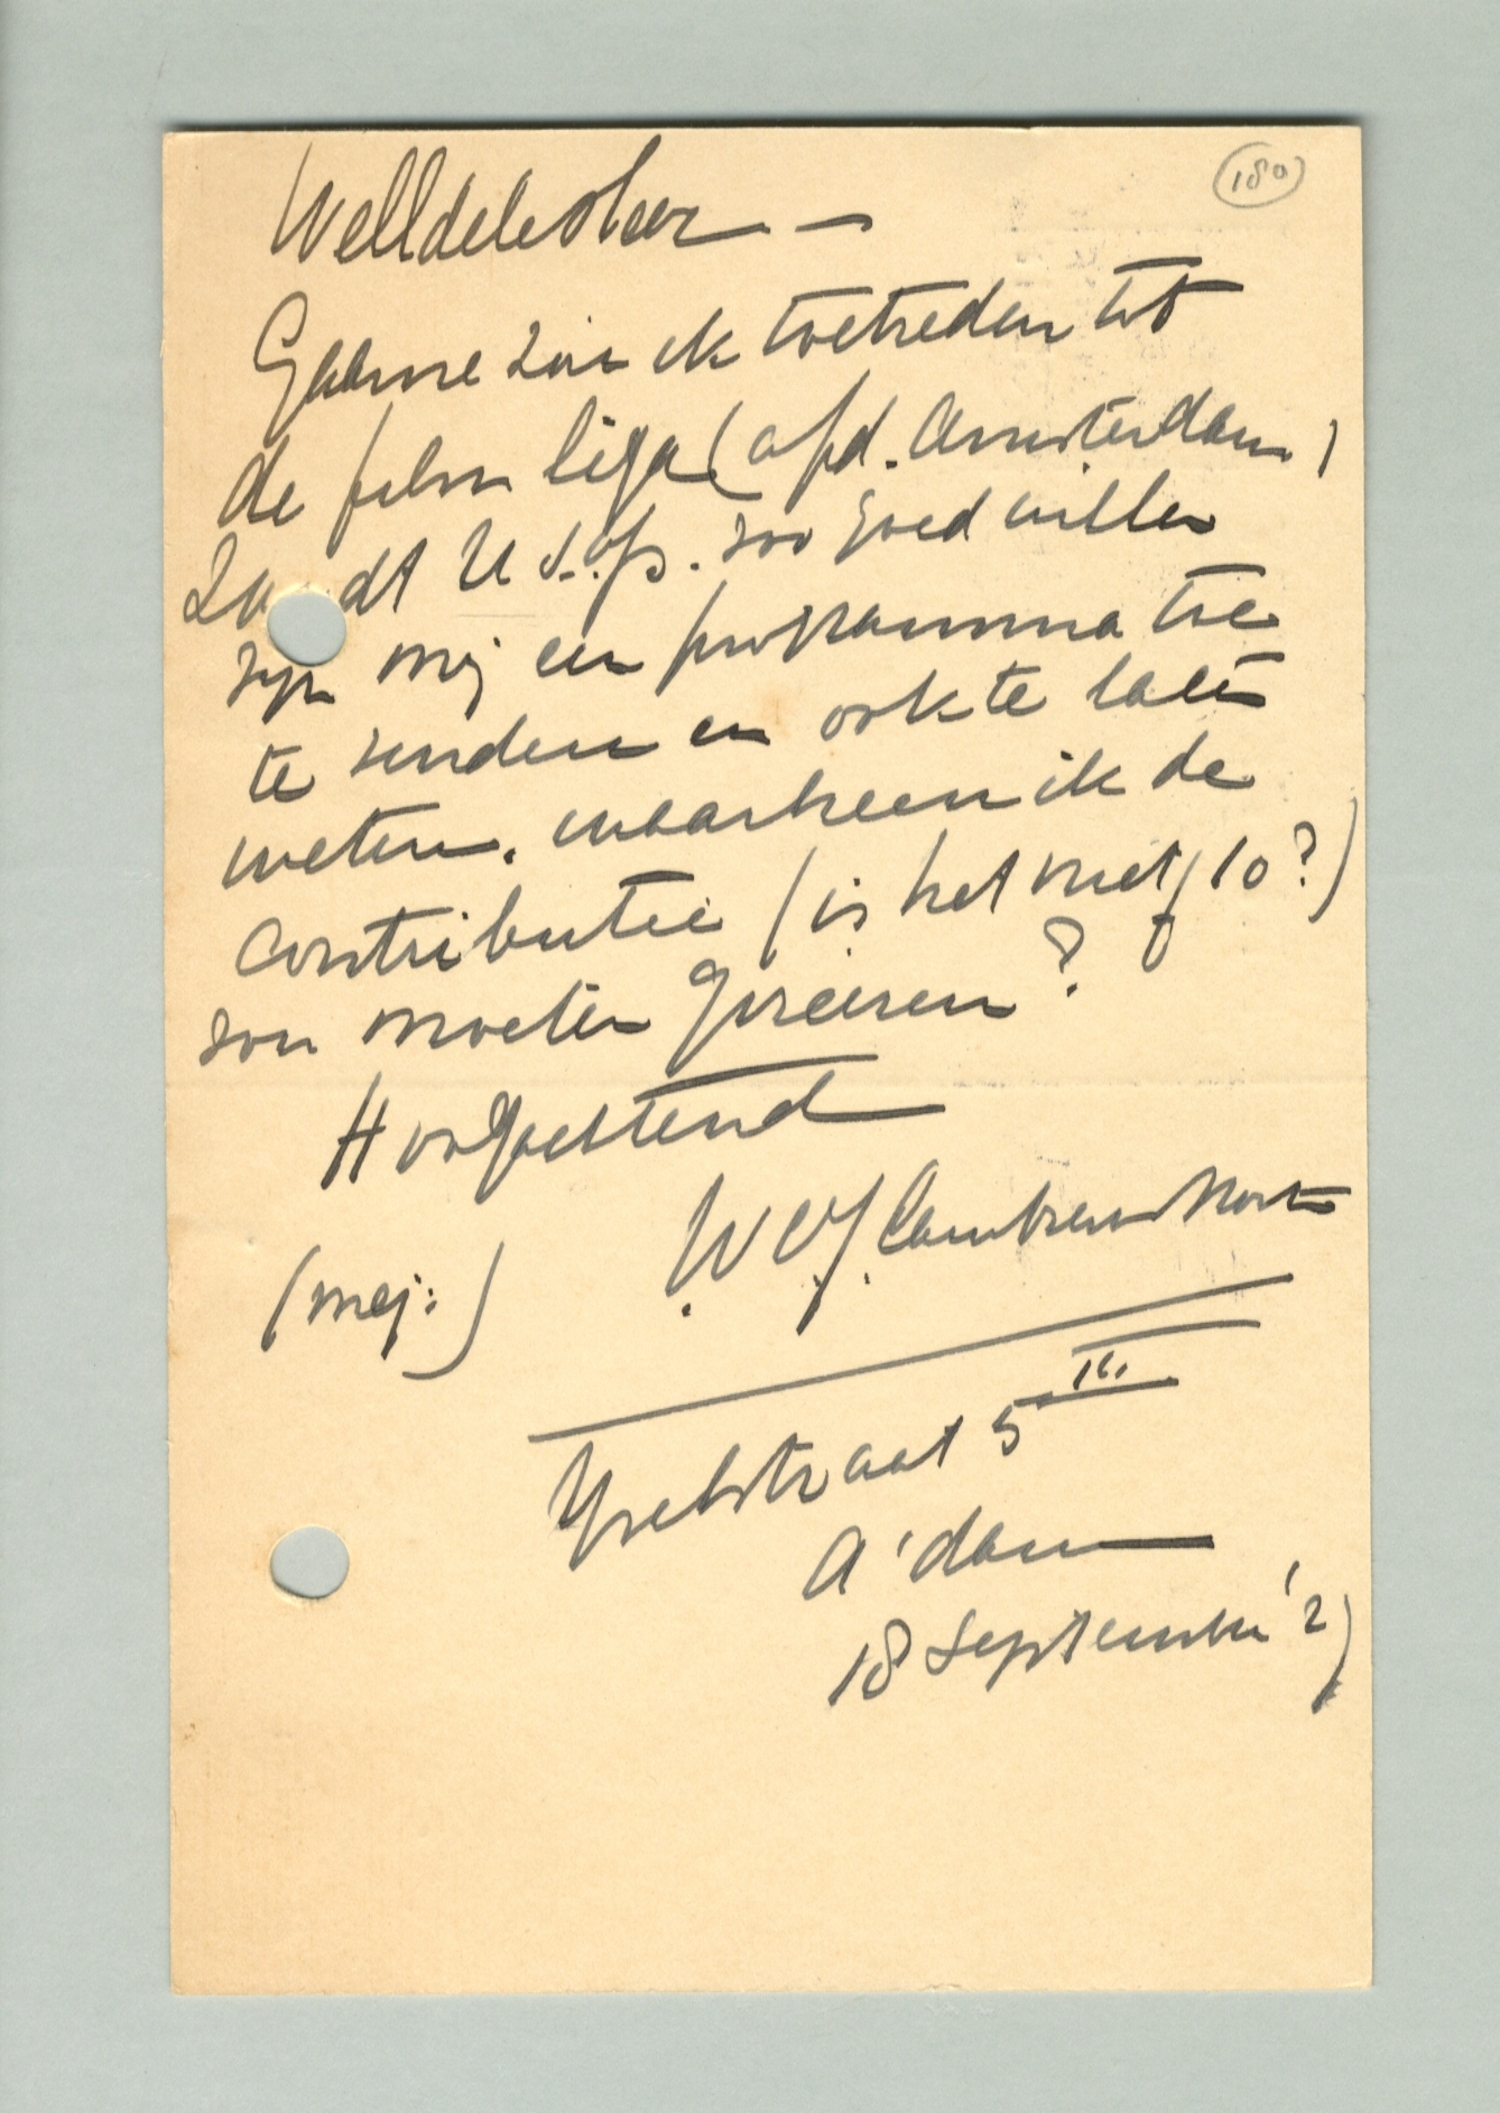 180
WelEdele Heer —
Gaarne zou ik toetreden tot
de film liga (afd. Amsterdam)
Zoudt U s.v.p. zoo goed willen
zijn mij een programma toe
te zenden en ook te laten
weten, waarheen ik de
contributie (is het niet f 10?)
zou moeten gireeren?
Hoogachtend
W C J
(mej:)
IJselstraat 5 III
A'dam
18 September '27